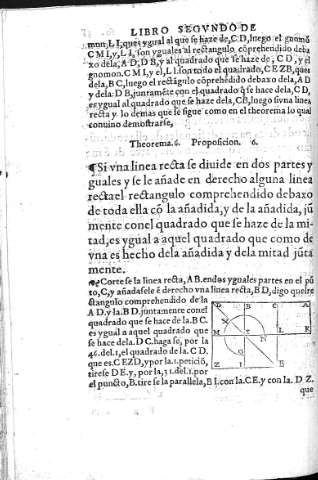 LIBRO SEGVNDO DE
mun, L I, que es ygual al que se haze de, C D, luego el gnomõ
C M I, y, L I, son yguales al rectangulo cõprehendido deba
xo dela, A D, D B, y al quadrado que se haze de, C D, y el
gnomon. C M I, y el, L I. son todo el quadrado, C E Z B, ques
dela, B C, luego el rectãgulo cõprehẽdido debaxo dela, A D
y dela D B, juntamẽte con el quadrado q̃ se haze dela, C D,
es ygual al quadrado que se haze dela, CB, luego si vna linea
recta y lo demas que se sigue como en el theorema lo qual
conuino demostrarse,
Theorema. 6. Proposicion. 6.
¶Si vna linea recta se diuide en dos partes y
guales y se le añade en derecho alguna linea
recta el rectangulo comprehendido debaxo
de toda ella cõ la añadida, y de la añadida, jũ
mente con el quadrado que se haze de la mi-
tad, es ygual a aquel quadrado que como de
vna es hecho dela añadida y dela mitad jũta
mente.
Corte se la linea recta, A B. en dos yguales partes en el pũ
to, C, y añadasele ẽ derecho vna linea recta, B D, digo que el re
ctangulo comprehendido de la
A D. y la. B D. juntamente con el
quadrado que se haze de la. B C.
es ygual a aquel quadrado que
se haze dela. D C. haga se, por la
46. del. 1, el quadrado de la. C D.
que es. C E Z D, y por la. 1. peticiõ,
tirese D E. y, por la, 31. del. 1. por
el puncto, B. tire se la parallela, B I. con la. C E. y con la. D Z.
que
D B C A
X
M T L K
G N
Z I E